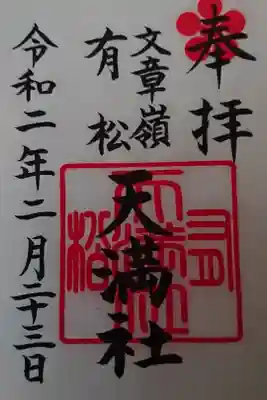 奉拝
文章嶺
有松
天満社
令和二年二月二十三日